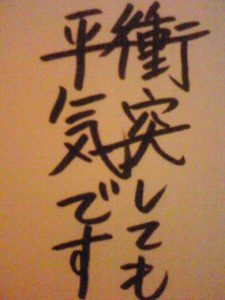 衝突しても
平気です